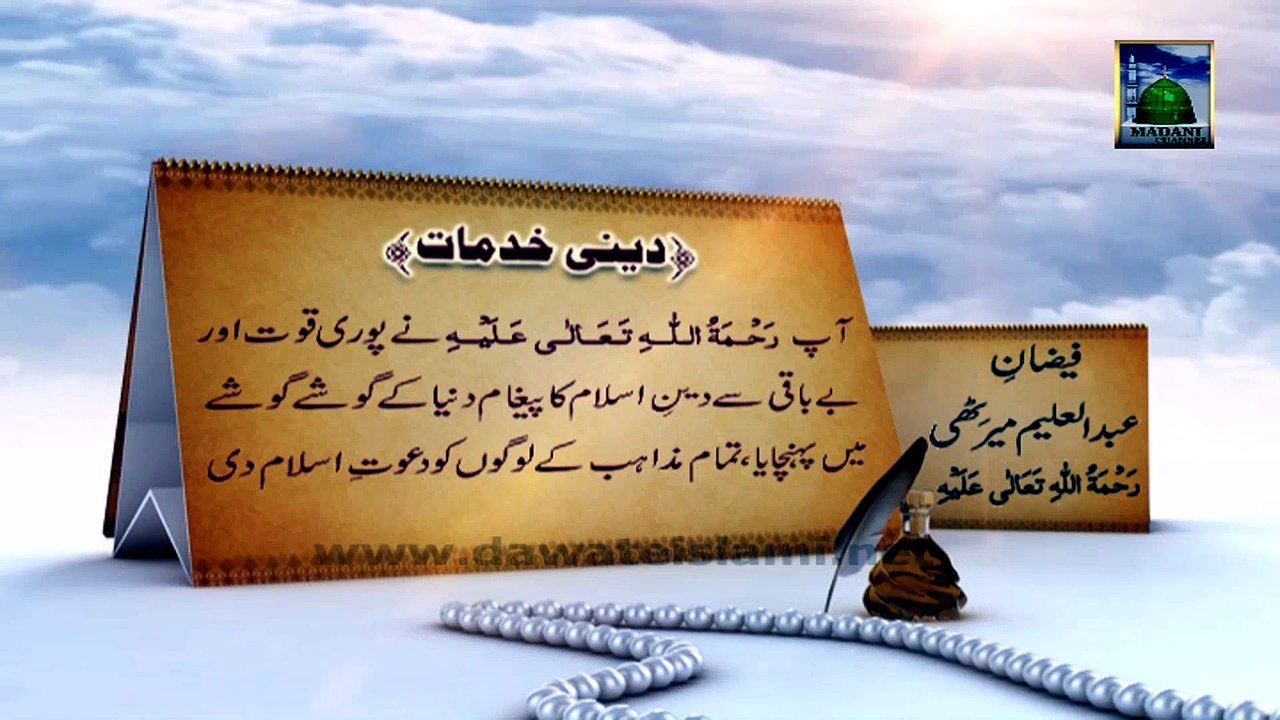 MADANI
CHANNEL
﴿دینی خدمات﴾
آپ رَحْمَۃُ اللّٰہِ تَعَالٰی عَلَیْہِ نے پوری قوت اور
بے باقی سے دینِ اسلام کا پیغام دنیا کے گوشے گوشے
میں پہنچایا، تمام مذاہب کے لوگوں کو دعوتِ اسلام دی
فیضانِ
عبدالعلیم میرٹھی
رَحْمَۃُ اللّٰہِ تَعَالٰی عَلَیْہِ
www.dawateislami.net